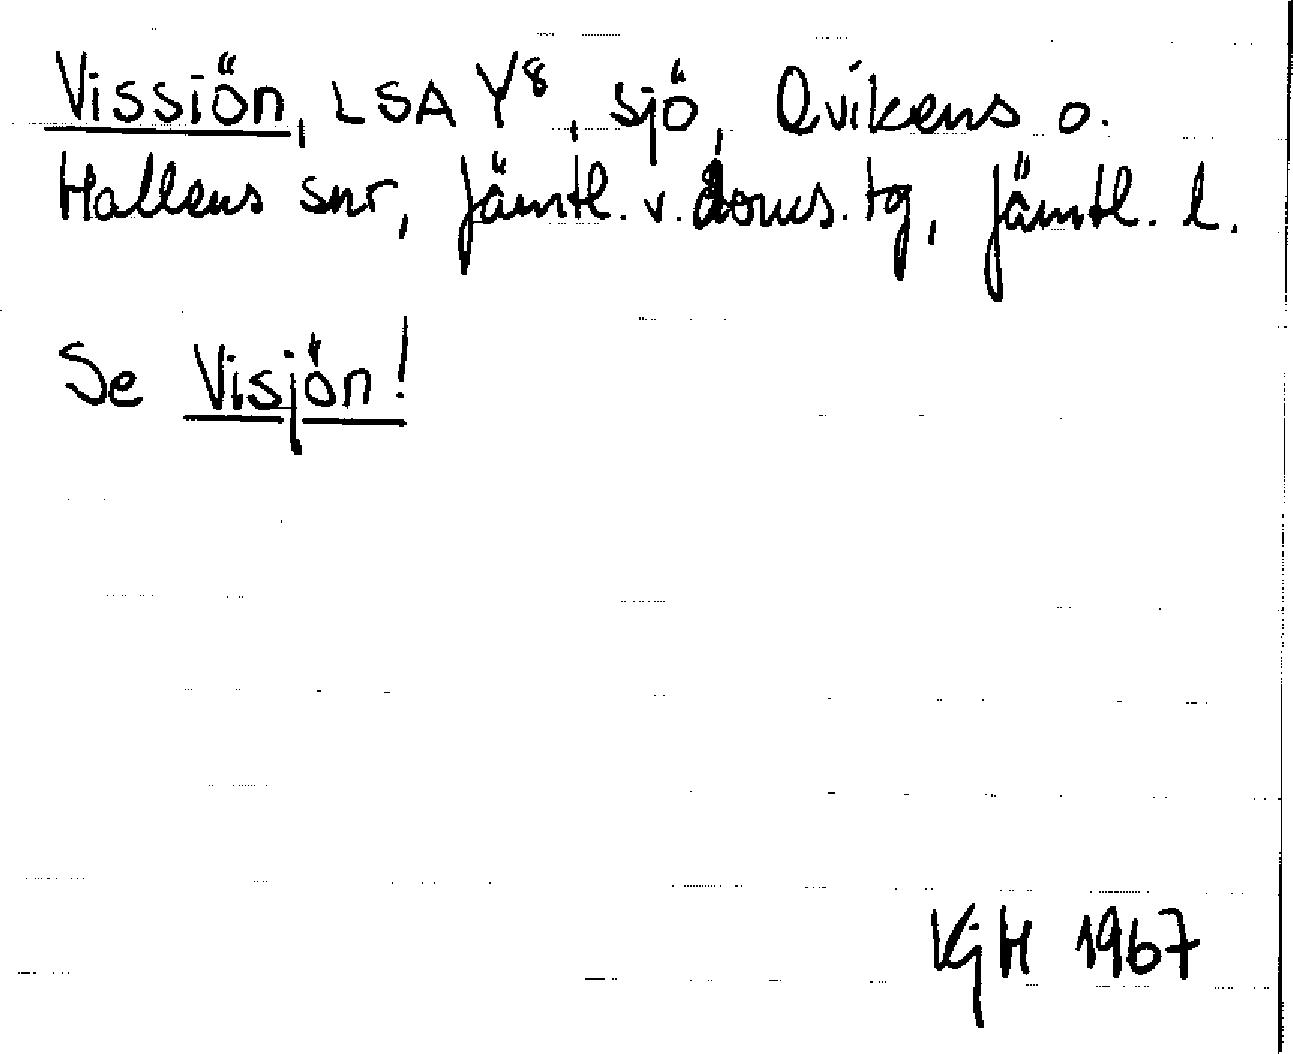 Vissiön, LSA Y⁸, sjö, Qvikens o.
Hallens snr, Jämtl. v. doms. tg, Jämtl. l.
Se Visjön!
KjH 1967